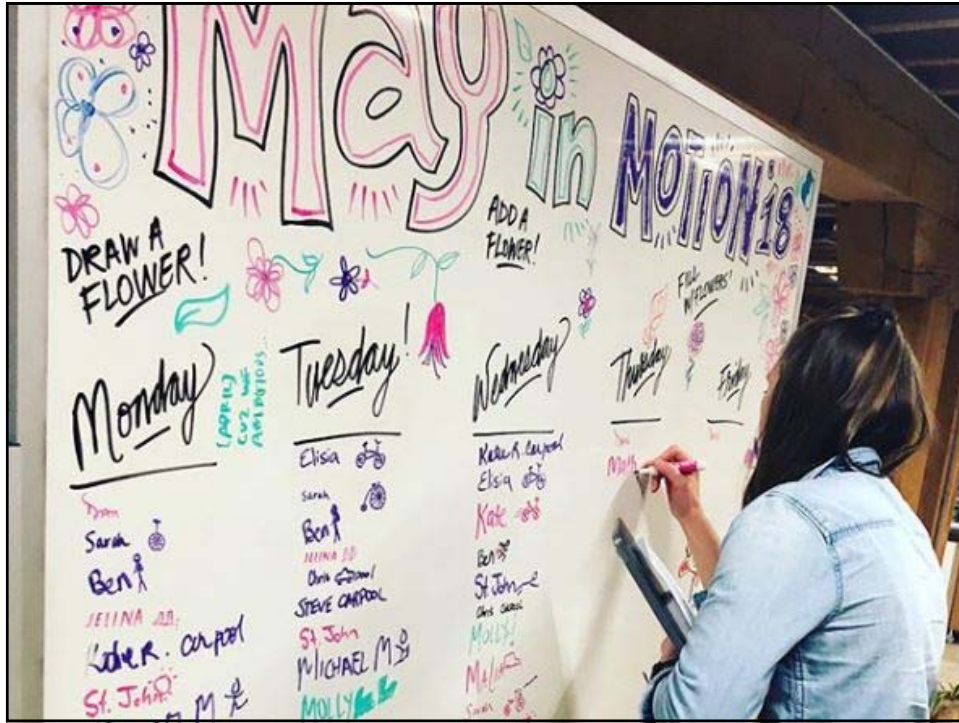 May in MOTION '18
DRAW A
FLOWER!
ADD A
FLOWER!
FILL
W/FLOWERS!
Monday
(APRIL)
CUZ WE
AMBITIOUS...
Sarah
Ben
JELINA
Katie R. carpool
St. John
M
Tuesday!
Elisia
Sarah
Ben
JELINA
Chris carpool
STEVE CARPOOL
St. John
MICHAEL M
MOLLY
Wednesday
Katie R. carpool
Elisia
Kate
Ben
St John
Chris carpool
MOLLY!
Sarah
Thursday
Friday